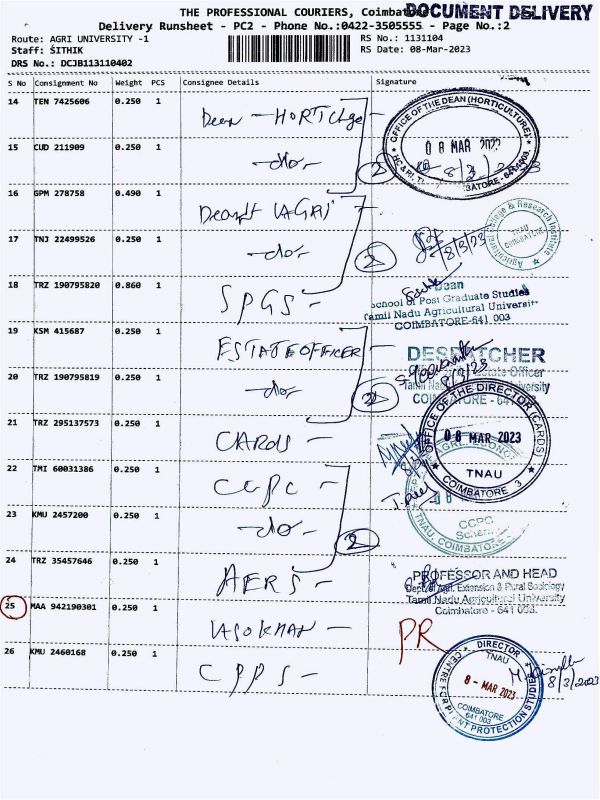 THE PROFESSIONAL COURIERS, Coimbat
DOCUMENT DELIVERY
Delivery Runsheet - PC2 - Phone No.:0422-3505555 - Page No.:2
Route: AGRI UNIVERSITY -1
RS No.: 1131104
Staff: SITHIK
RS Date: 08-Mar-2023
DRS No.: DCJB113110402
S No Consignment No Weight PCS Consignee Details Signature
14 TEN 7425606 0.250 1 Dean - HORTI
OFFICE OF THE DEAN (HORTICULTURE)
08 MAR 2023
15 CUD 211909 0.250 1 -do-
2
8/3/2023
16 GPM 278758 0.490 1
17 TNJ 22499526 0.250 1 -do-
2
8/3/23
Agricultural College & Research Institute
TNAU
COIMBATORE
18 TRZ 190795820 0.860 1 SPGS -
Dean
School of Post Graduate Studies
Tamil Nadu Agricultural University
COIMBATORE-641 003
19 KSM 415687 0.250 1 ESTATE OFFICER
DESPATCHER
Estate Officer
20 TRZ 190795819 0.250 1 -do-
2
8/3/23
Tamil Nadu Agricultural University
COIMBATORE - 641 003
21 TRZ 295137573 0.250 1 CARDS -
OFFICE OF THE DIRECTOR (CARDS)
08 MAR 2023
TNAU
COIMBATORE 3
22 TMI 60031386 0.250 1 CCPC -
23 KMU 2457200 0.250 1 -do-
2
CCPC
Scheme
TNAU, COIMBATORE
24 TRZ 35457646 0.250 1 AERS -
PROFESSOR AND HEAD
Dept. of Agri. Extension & Rural Sociology
Tamil Nadu Agricultural University
Coimbatore - 641 003.
25 MAA 942190301 0.250 1 PR
26 KMU 2460168 0.250 1 CPPS -
DIRECTOR
TNAU
CENTRE FOR PLANT PROTECTION STUDIES
8 - MAR 2023
COIMBATORE
641 003
8/3/2023